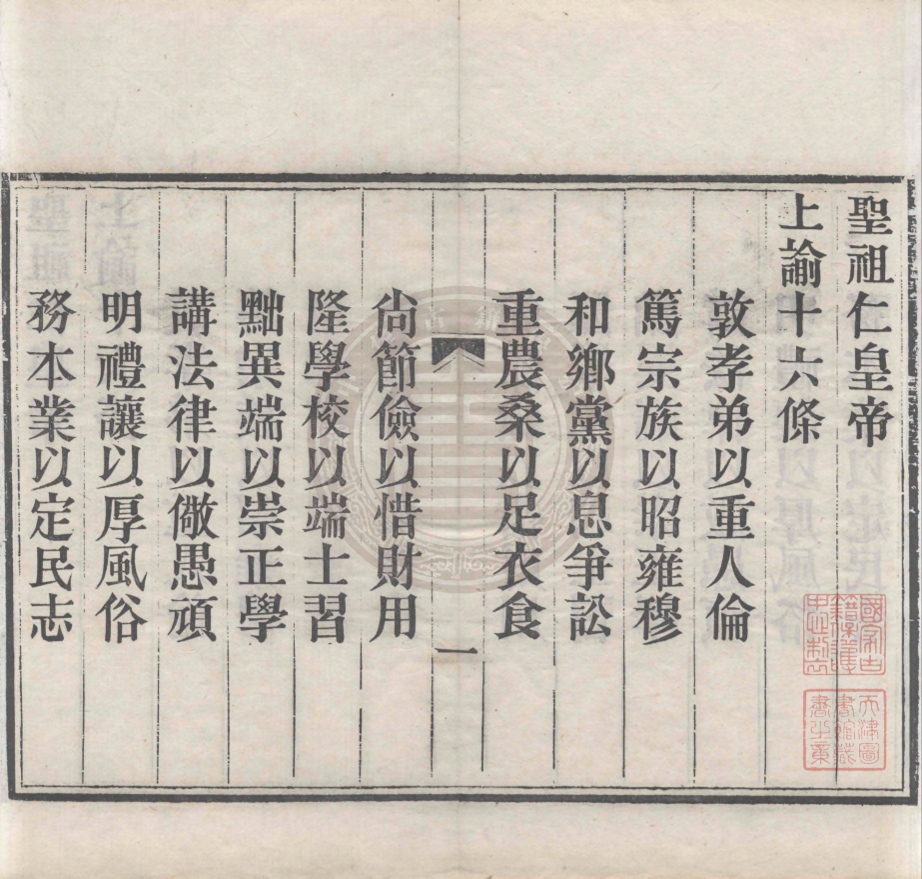 聖祖仁皇帝
上諭十六條
敦孝弟以重人倫
篤宗族以昭雍穆
和鄉黨以息爭訟
重農桑以足衣食
一
尙節儉以惜財用
隆學校以端士習
黜異端以崇正學
講法律以儆愚頑
明禮讓以厚風俗
務本業以定民志
天津圖
書館藏
書之章